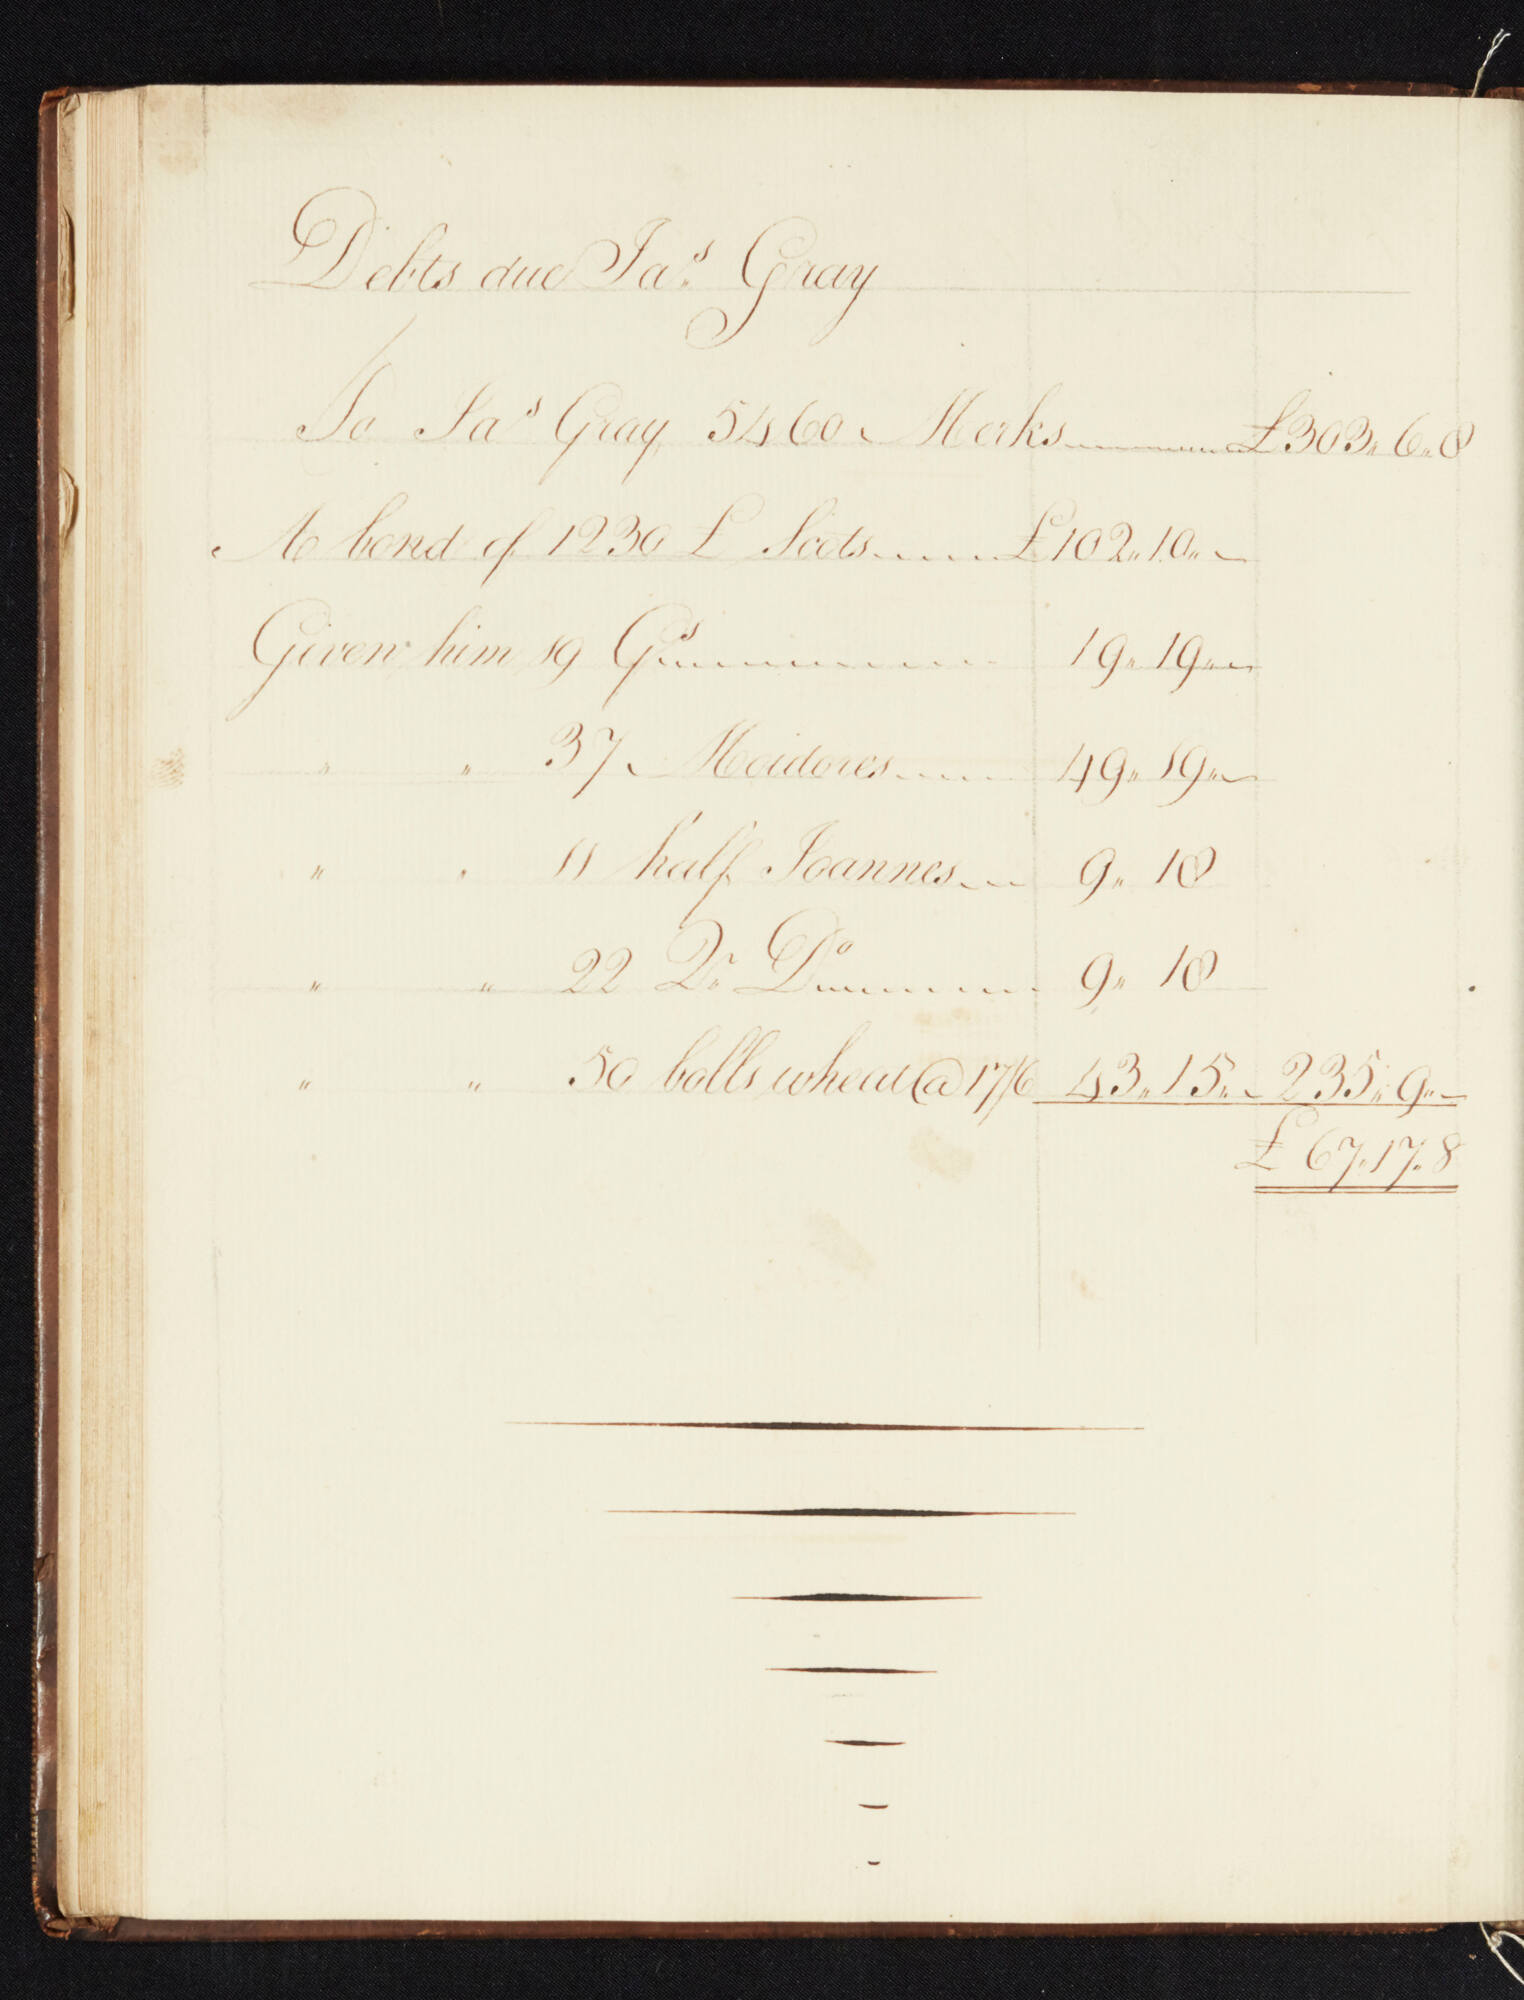 Debts due Jas. Gray
To Jas Gray 5460 Merks £303„ 6„ 8
A bond of 1230 £ Scots £102„ 10„ -
Given him 19 Gs 19„ 19„ -
„ „ 37 Moidores 49„ 19„ -
„ „ 11 half Joannes 9„ 18
„ „ 22 Qr. Do 9„ 18
„ „ 50 bolls wheat @ 17/6 43„ 15„ - 235„ 9„ -
£ 67„ 17„ 8